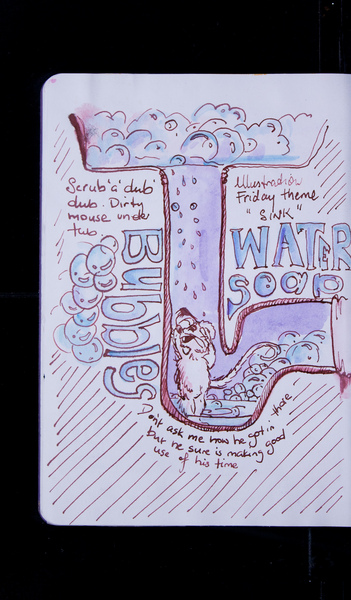 Scrub 'a' dub
dub. Dirty
mouse under
tub.
Illustration
Friday theme
"SINK"
WATER
SOAP
Bubbles
Don't ask me how he got in there
but he sure is making good
use of his time